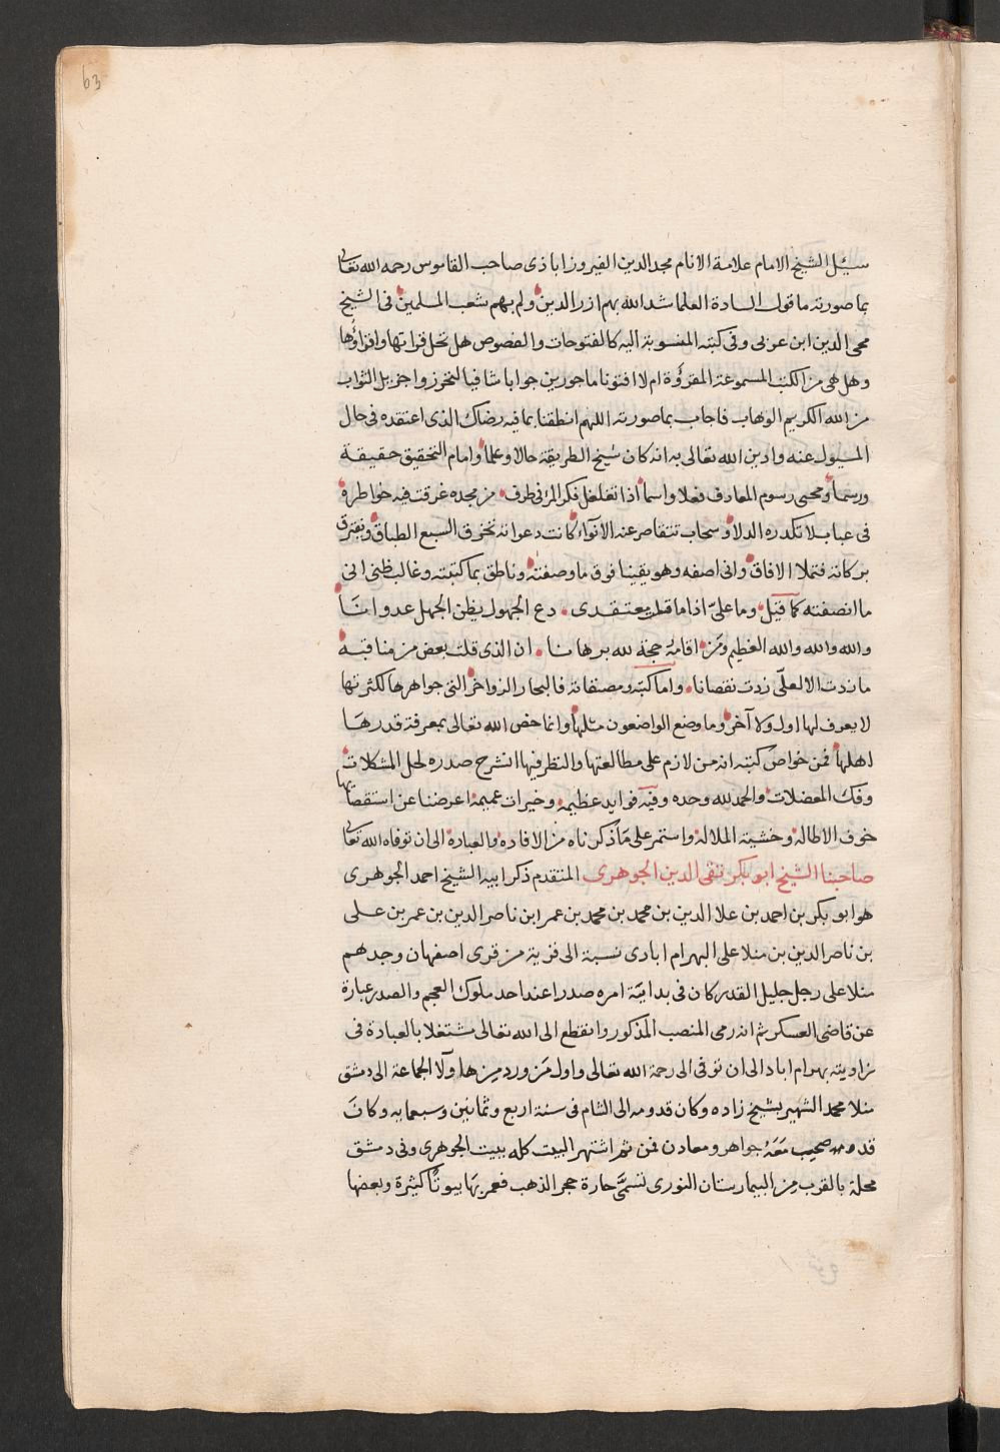 63
سئل الشيخ الامام علامة الانام مجد الدين الفيروزاباذى صاحب القاموس رحمه الله تعالى
بما صورته ما قول السادة العلما شد الله بهم ازر الدين ولم بهم شعب المسلمين فى الشيخ
محى الدين ابن عربى وفى كتبه المنسوبة اليه كالفتوحات والفصوص هل تحل قراتها واقراؤها
وهل هى من الكتب المسموعة المقرؤة ام لا افتونا ماجورين جوابا شافيا لتحوزوا جزيل الثواب
من الله الكريم الوهاب فاجاب بما صورته اللهم انطقنا بما فيه رضاك الذى اعتقده فى حال
المسيول عنه وادين الله تعالى به انه كان شيخ الطريقة حالا وعلما وامام التحقيق حقيقة
ورسما ومحيى رسوم المعارف فعلا واسما اذا تغلغل فكر المرء فى طرف من مجده غرقت فيه خواطره
فى عباب لا تكدره الدلا وسحاب تتقاصر عنه الانواء كانت دعوانه تخرق السبع الطباق وتفترق
بركاته فتملا الافاق وانى اصفه وهو يقينا فوق ما وصفته وناطق بما كتبته وغالب ظنى انى
ما انصفته كما قيل وما علىّ اذا ما قلت معتقدى دع الجهول يظن الجهل عدوانا
والله والله والله العظيم ومن اقامه حجة لله برهانا ان الذى قلت بعض من مناقبه
ما زدت الا لعلّى زدت نقصانا واما كتبه ومصنفاته فالبحار الزواخر التى جواهرها لكثرتها
لا يعرف لها اول ولا آخر وما وضع الواضعون مثلها وانما خص الله تعالى بمعرفة قدرها
اهلها فمن خواص كتبه انه من لازم على مطالعتها والنظر فيها انشرح صدره لحل المشكلات
وفك المعضلات والحمد لله وحده وفيه فوايد عظيمة وخيرات عميمة اعرضنا عن استقصائها
خوف الاطاله وخشية الملاله واستمر على ما ذكرناه من الافاده والعباده الى ان توفاه الله تعالى
صاحبنا الشيخ ابو بكر تقى الدين الجوهرى المتقدم ذكر ابيه الشيخ احمد الجوهرى
هو ابو بكر بن احمد بن علا الدين بن محمد بن محمد بن عمر ابن ناصر الدين بن عمر بن على
بن ناصر الدين بن منلا على البهرام ابادى نسبة الى قرية من قرى اصفهان وجدهم
منلا على رجل جليل القدر كان فى بداية امره صدرا عند احد ملوك العجم والصدر عبارة
عن قاضى العسكر ثم انه رمى المنصب المذكور وانقطع الى الله تعالى مشتغلا بالعبادة فى
زاويته بهرام اباد الى ان توفى الى رحمة الله تعالى واول من ورد من هاولآ الجماعة الى دمشق
منلا محمد الشهير بشيخ زاده وكان قدومه الى الشام فى سنة اربع وثمانين وسبعمايه وكان
قدومه صحب معه جواهر ومعادن فمن ثم اشتهر البيت كله ببيت الجوهرى وفى دمشق
محلة بالقرب من البيمارستان النورى تسمى حارة حجر الذهب فعمر بها بيوتا كثيرة وبعضها